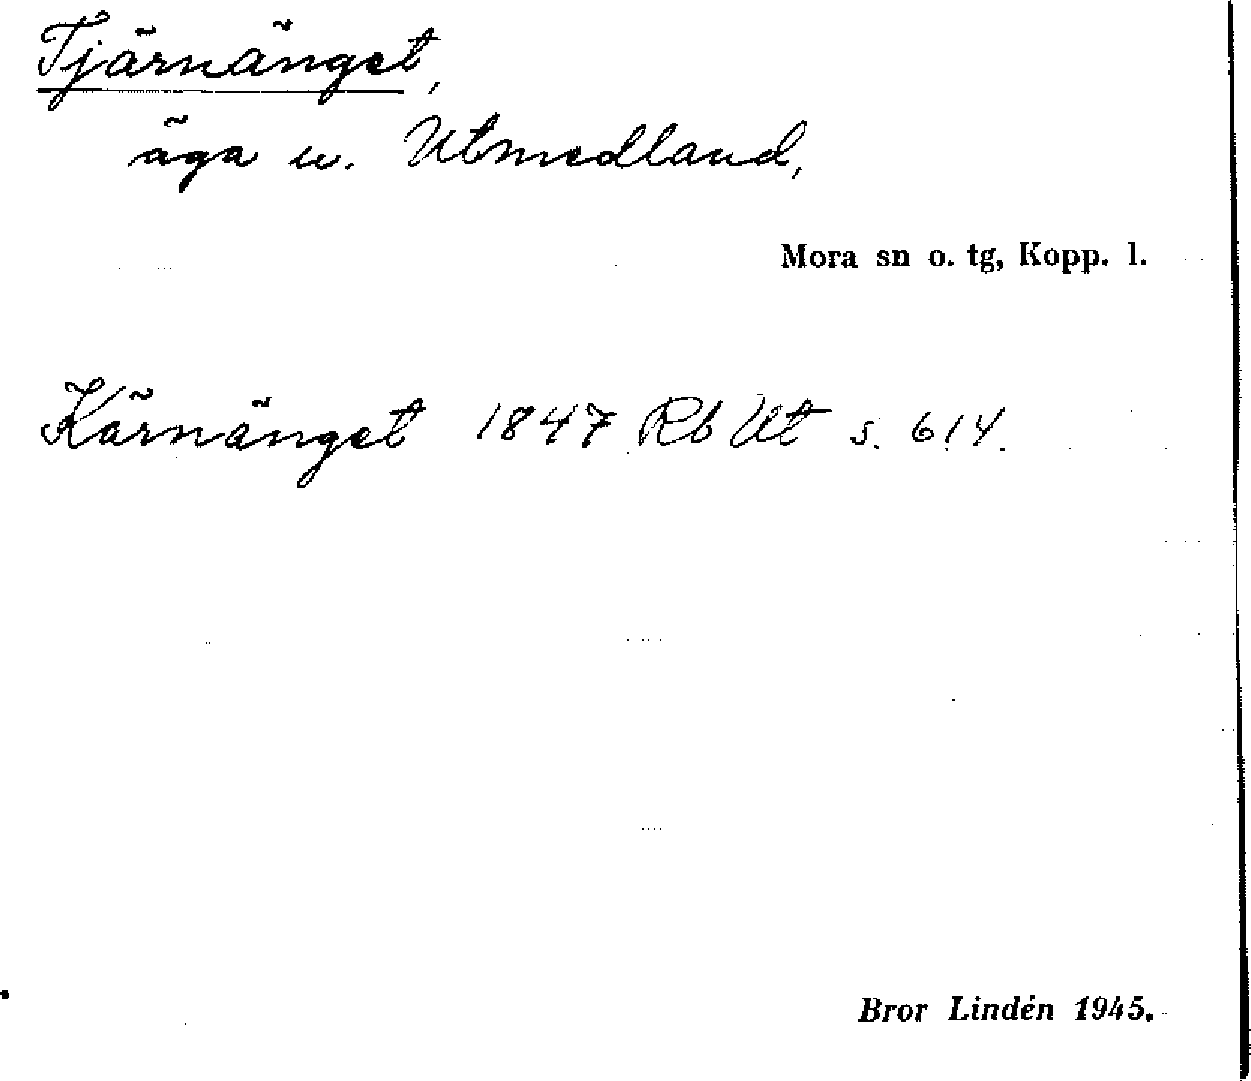 Tjärnänget,
äga u. Utmedland,
Mora sn o. tg, Kopp. l.
Kärnänget 1847 Rb Ut s. 614.
Bror Lindén 1945.